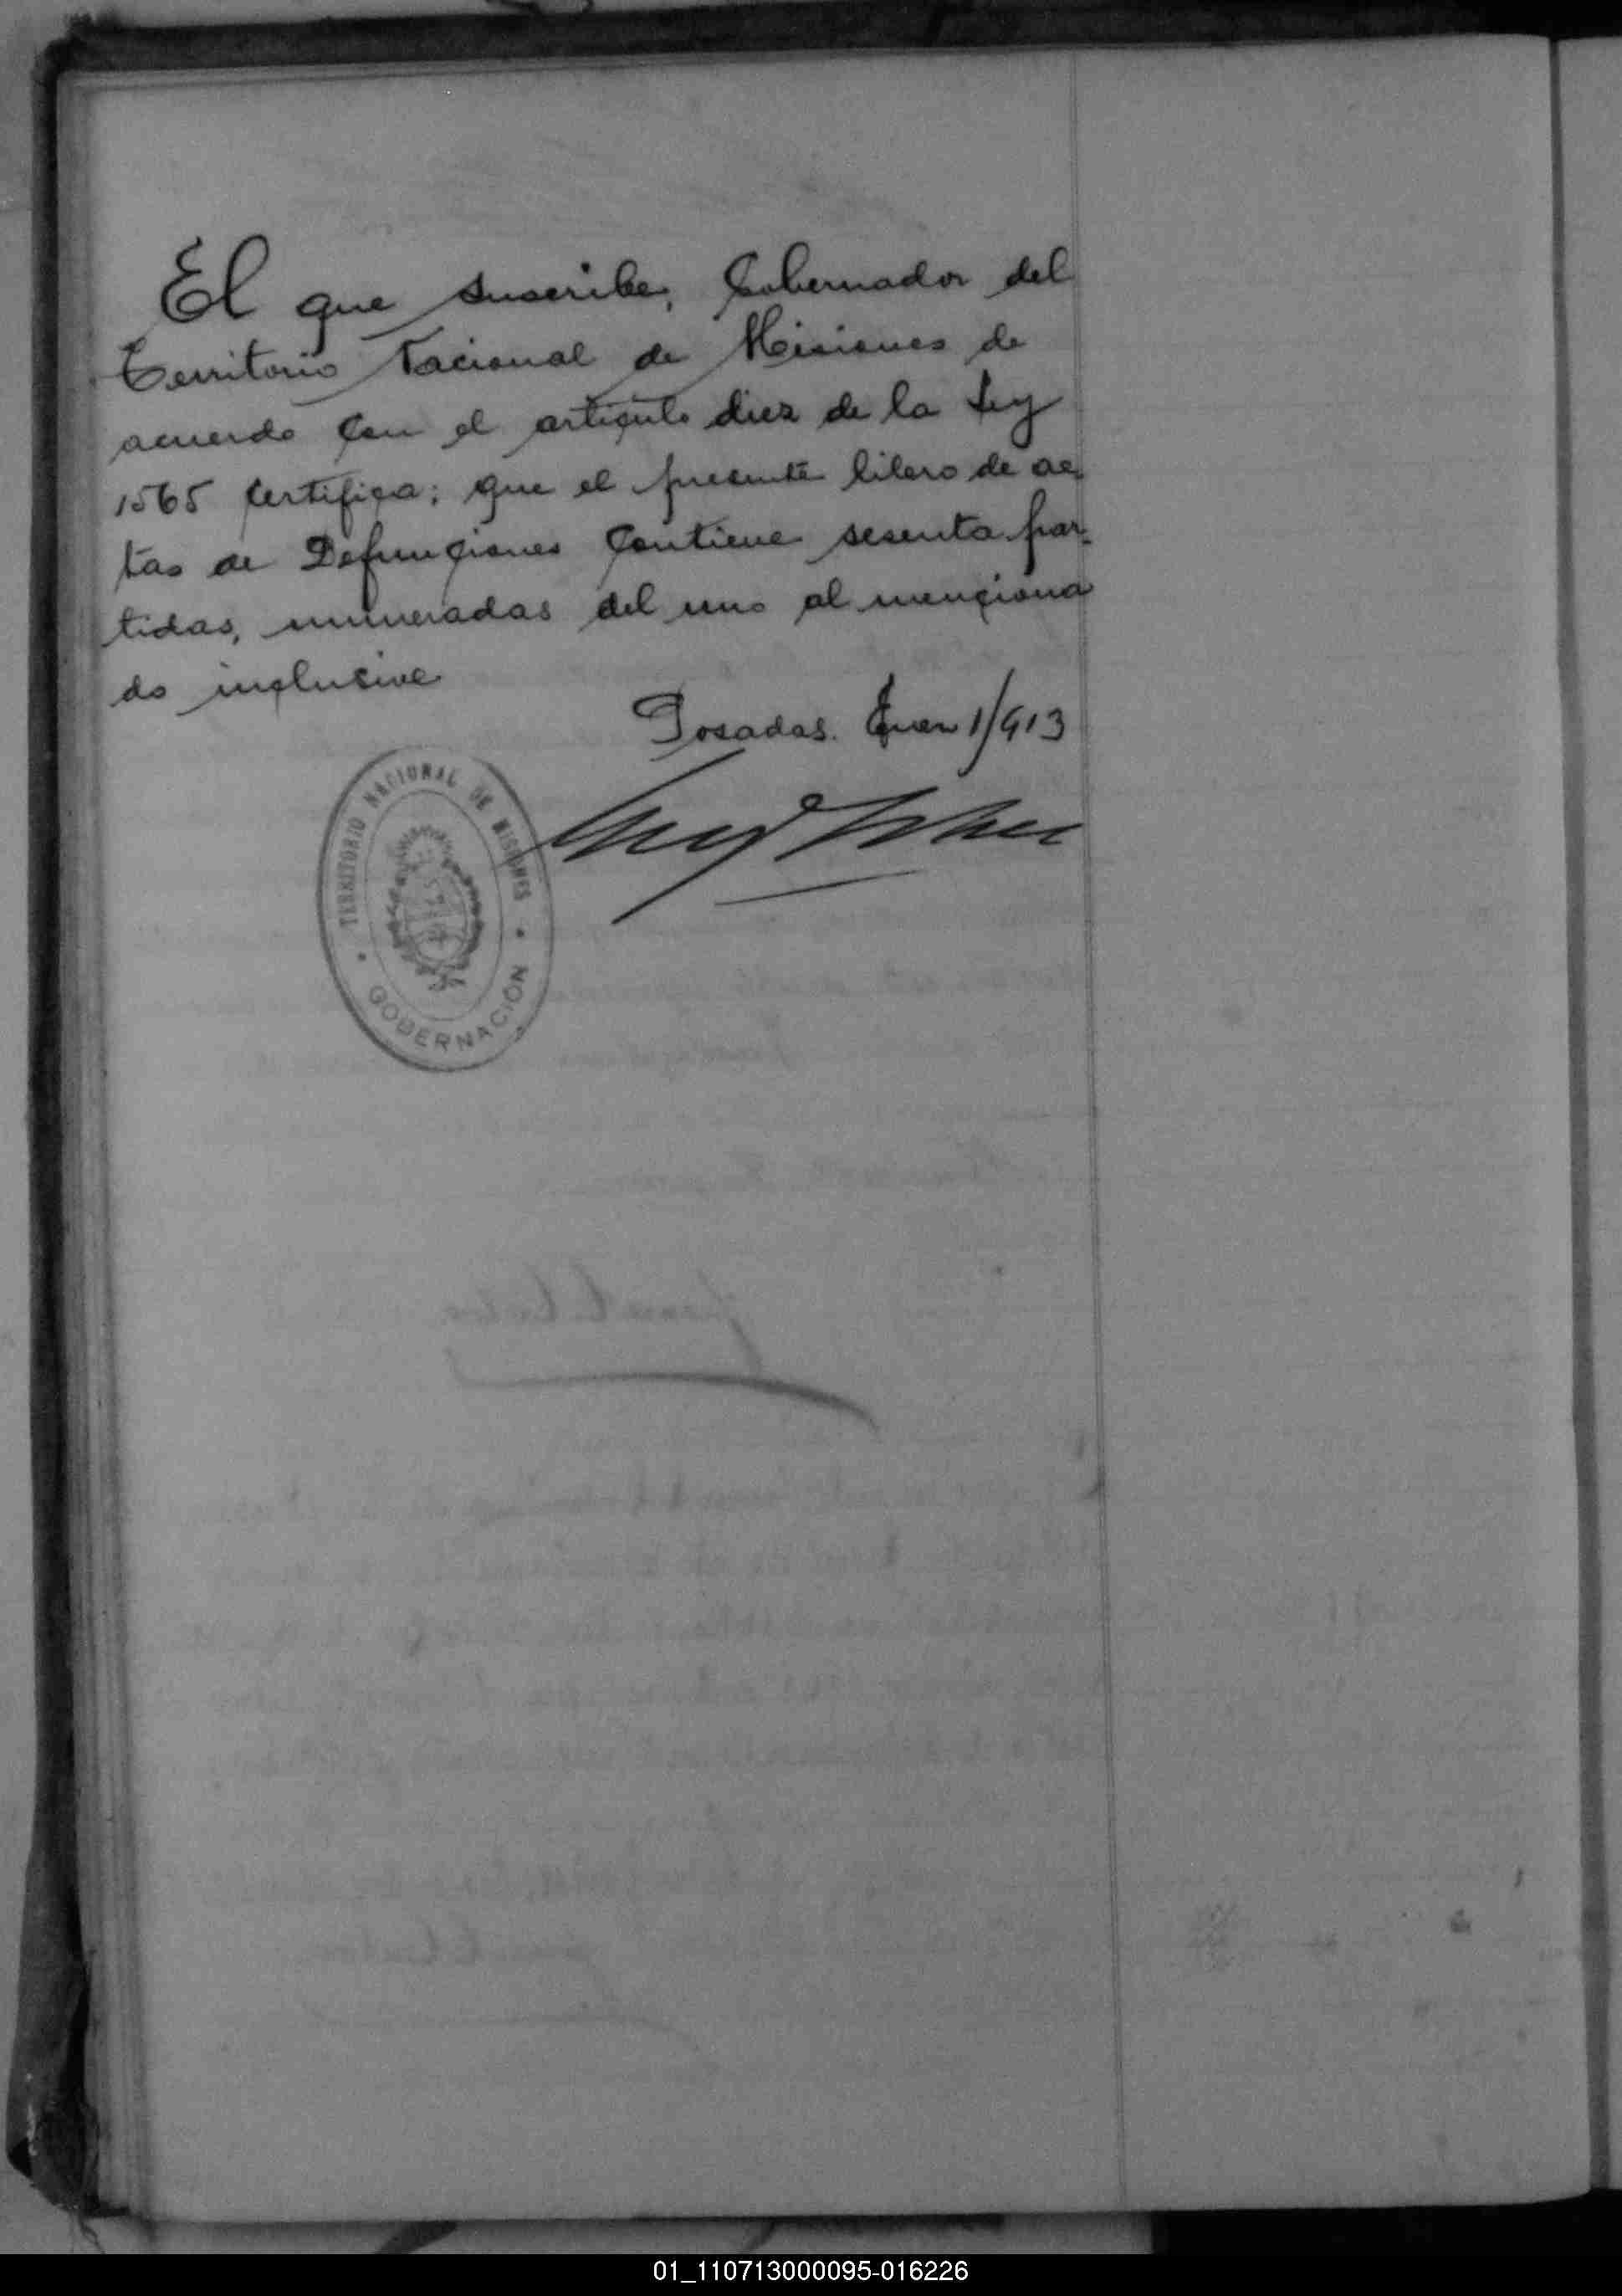 El que suscribe, Gobernador del
Territorio Nacional de Misiones de
acuerdo con el artículo diez de la Ley
1565 certifica; que el presente libro de ac-
tas de Defunciones contiene sesenta par-
tidas, numeradas del uno al menciona
do inclusive
Posadas. Enero 1/913
TERRITORIO NACIONAL DE MISIONES
GOBERNACIÓN
01_110713000095-016226